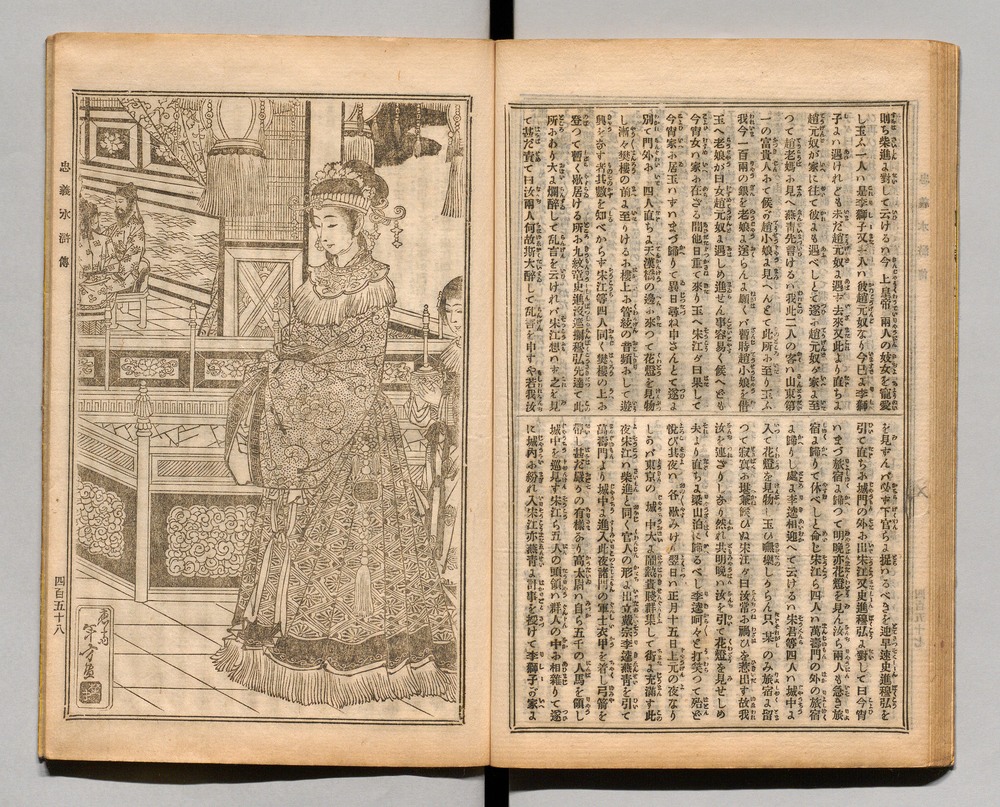 則ち柴進に對して云けるハ今上皇帝兩人の妓女を寵愛
し玉ふ一人ハ是李獅子又一人ハ彼趙元奴なり今已に李獅
子に遇けれども未だ趙元奴に遇ず去來又此より直ちに
趙元奴が家に往て彼にも遇べしとて遂に趙元奴が家に至
つて趙老媽に見へ燕青先曾けるハ我此二人の客ハ山東第
一の富貴人にて候が趙小娘に見へんとて此所に至り玉ふ
我今一百兩の銀を老娘に送らんに願くバ暫時趙小娘を借
玉へ老娘が曰女趙元奴に遇しめ進せん事容易く候へども
今宵女ハ家に在ざる間他日重て來り玉へ宋江が曰果して
今宵家に居玉ハずハまづ歸りて異日尋ね申さんとて遂に
別て門外に出四人直ちに天漢橋の邊に來つて花燈を見物
し漸々樊樓の前に至りけるに樓上に管絃の音頻にして遊
興をなす者其數を知べからず宋江等四人同く樊樓の上に
登つて暫く歇居ける所に九紋龍史進沒遮攔穆弘先達て此
所にあり大に爛醉して乱言を云けれバ宋江想ハず之を見
て甚だ責て曰汝兩人何故斯大醉して乱言を申すや若我汝
を見ずんバ必ず下官らに捉ハるべきを迎早速史進穆弘を
引て直ちに城門の外に出宋江又史進穆弘に對して曰今宵
ハまづ旅宿に歸つて明晩亦花燈を見ん汝ら兩人も急ぎ旅
宿に歸りて休べしと命じ宋江ら四人ハ萬壽門の外の旅宿
に歸りし處に李逵相迎へて云けるハ宋君等四人ハ城中に
入て花燈を見物し玉ひ嘸樂しからん只某のみ旅宿に留
つて寂寞に堪兼候ひぬ宋江が曰汝常に禍ひを惹出す故我
汝を連ざりしなり然れ共明晩ハ汝を引て花燈を見せしめ
夫より直ちに梁山泊に歸るべし李逵呵々と打笑つて殆ど
悦び其夜ハ各歇みけり翌日ハ正月十五日上元の夜なり
しかバ東京の城中大に鬧熱貴賤群集して衢に充滿す此
夜宋江ハ柴進と同く官人の形に出立戴宗李逵燕青を引て
萬壽門より城中に進入此夜諸門の軍士衣甲を着し弓箭を
帶し甚だ嚴りの有樣なり高太尉ハ自ら五千の人馬を領し
城中を巡見す宋江ら五人の頭領ハ群人の中に相雜りて遂
に城内に紛れ入宋江亦燕青に計事を授けて李獅子が家に
忠義水滸傳
四百五十八
應需
年方画